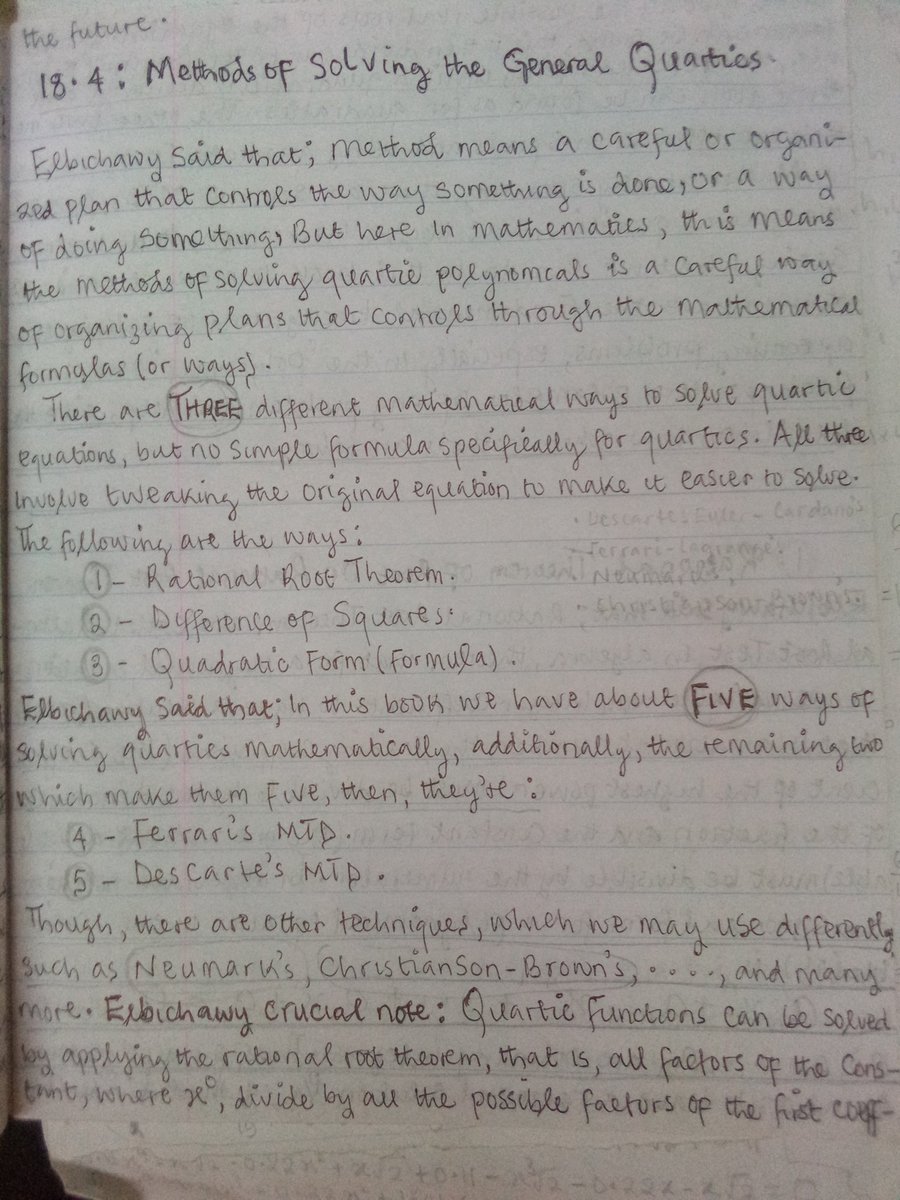 the future.
18.4: Methods of Solving the General Quartics.
Elbichawy Said that; Method means a careful or organi-
zed plan that controls the way something is done, or a way
of doing something, But here in mathematics, this means
the methods of solving quartic polynomials is a careful way
of organizing plans that controls through the mathematical
formulas (or ways).
There are THREE different mathematical ways to solve quartic
equations, but no simple formula specifically for quartics. All three
involve tweaking the original equation to make it easier to solve.
The following are the ways:
1 - Rational Root Theorem.
2 - Difference of Squares.
3 - Quadratic Form (Formula).
Elbichawy Said that; In this book we have about FIVE ways of
solving quartics mathematically, additionally, the remaining two
which make them FIVE, then, they're:
4 - Ferrari's MTD.
5 - DesCarte's MTD.
Though, there are other techniques, which we may use differently
such as Neumark's, Christianson-Brown's, ...., and many
more. Elbichawy crucial note: Quartic functions can be solved
by applying the rational root theorem, that is, all factors of the cons-
tant, where x⁰, divide by all the possible factors of the first coeff-